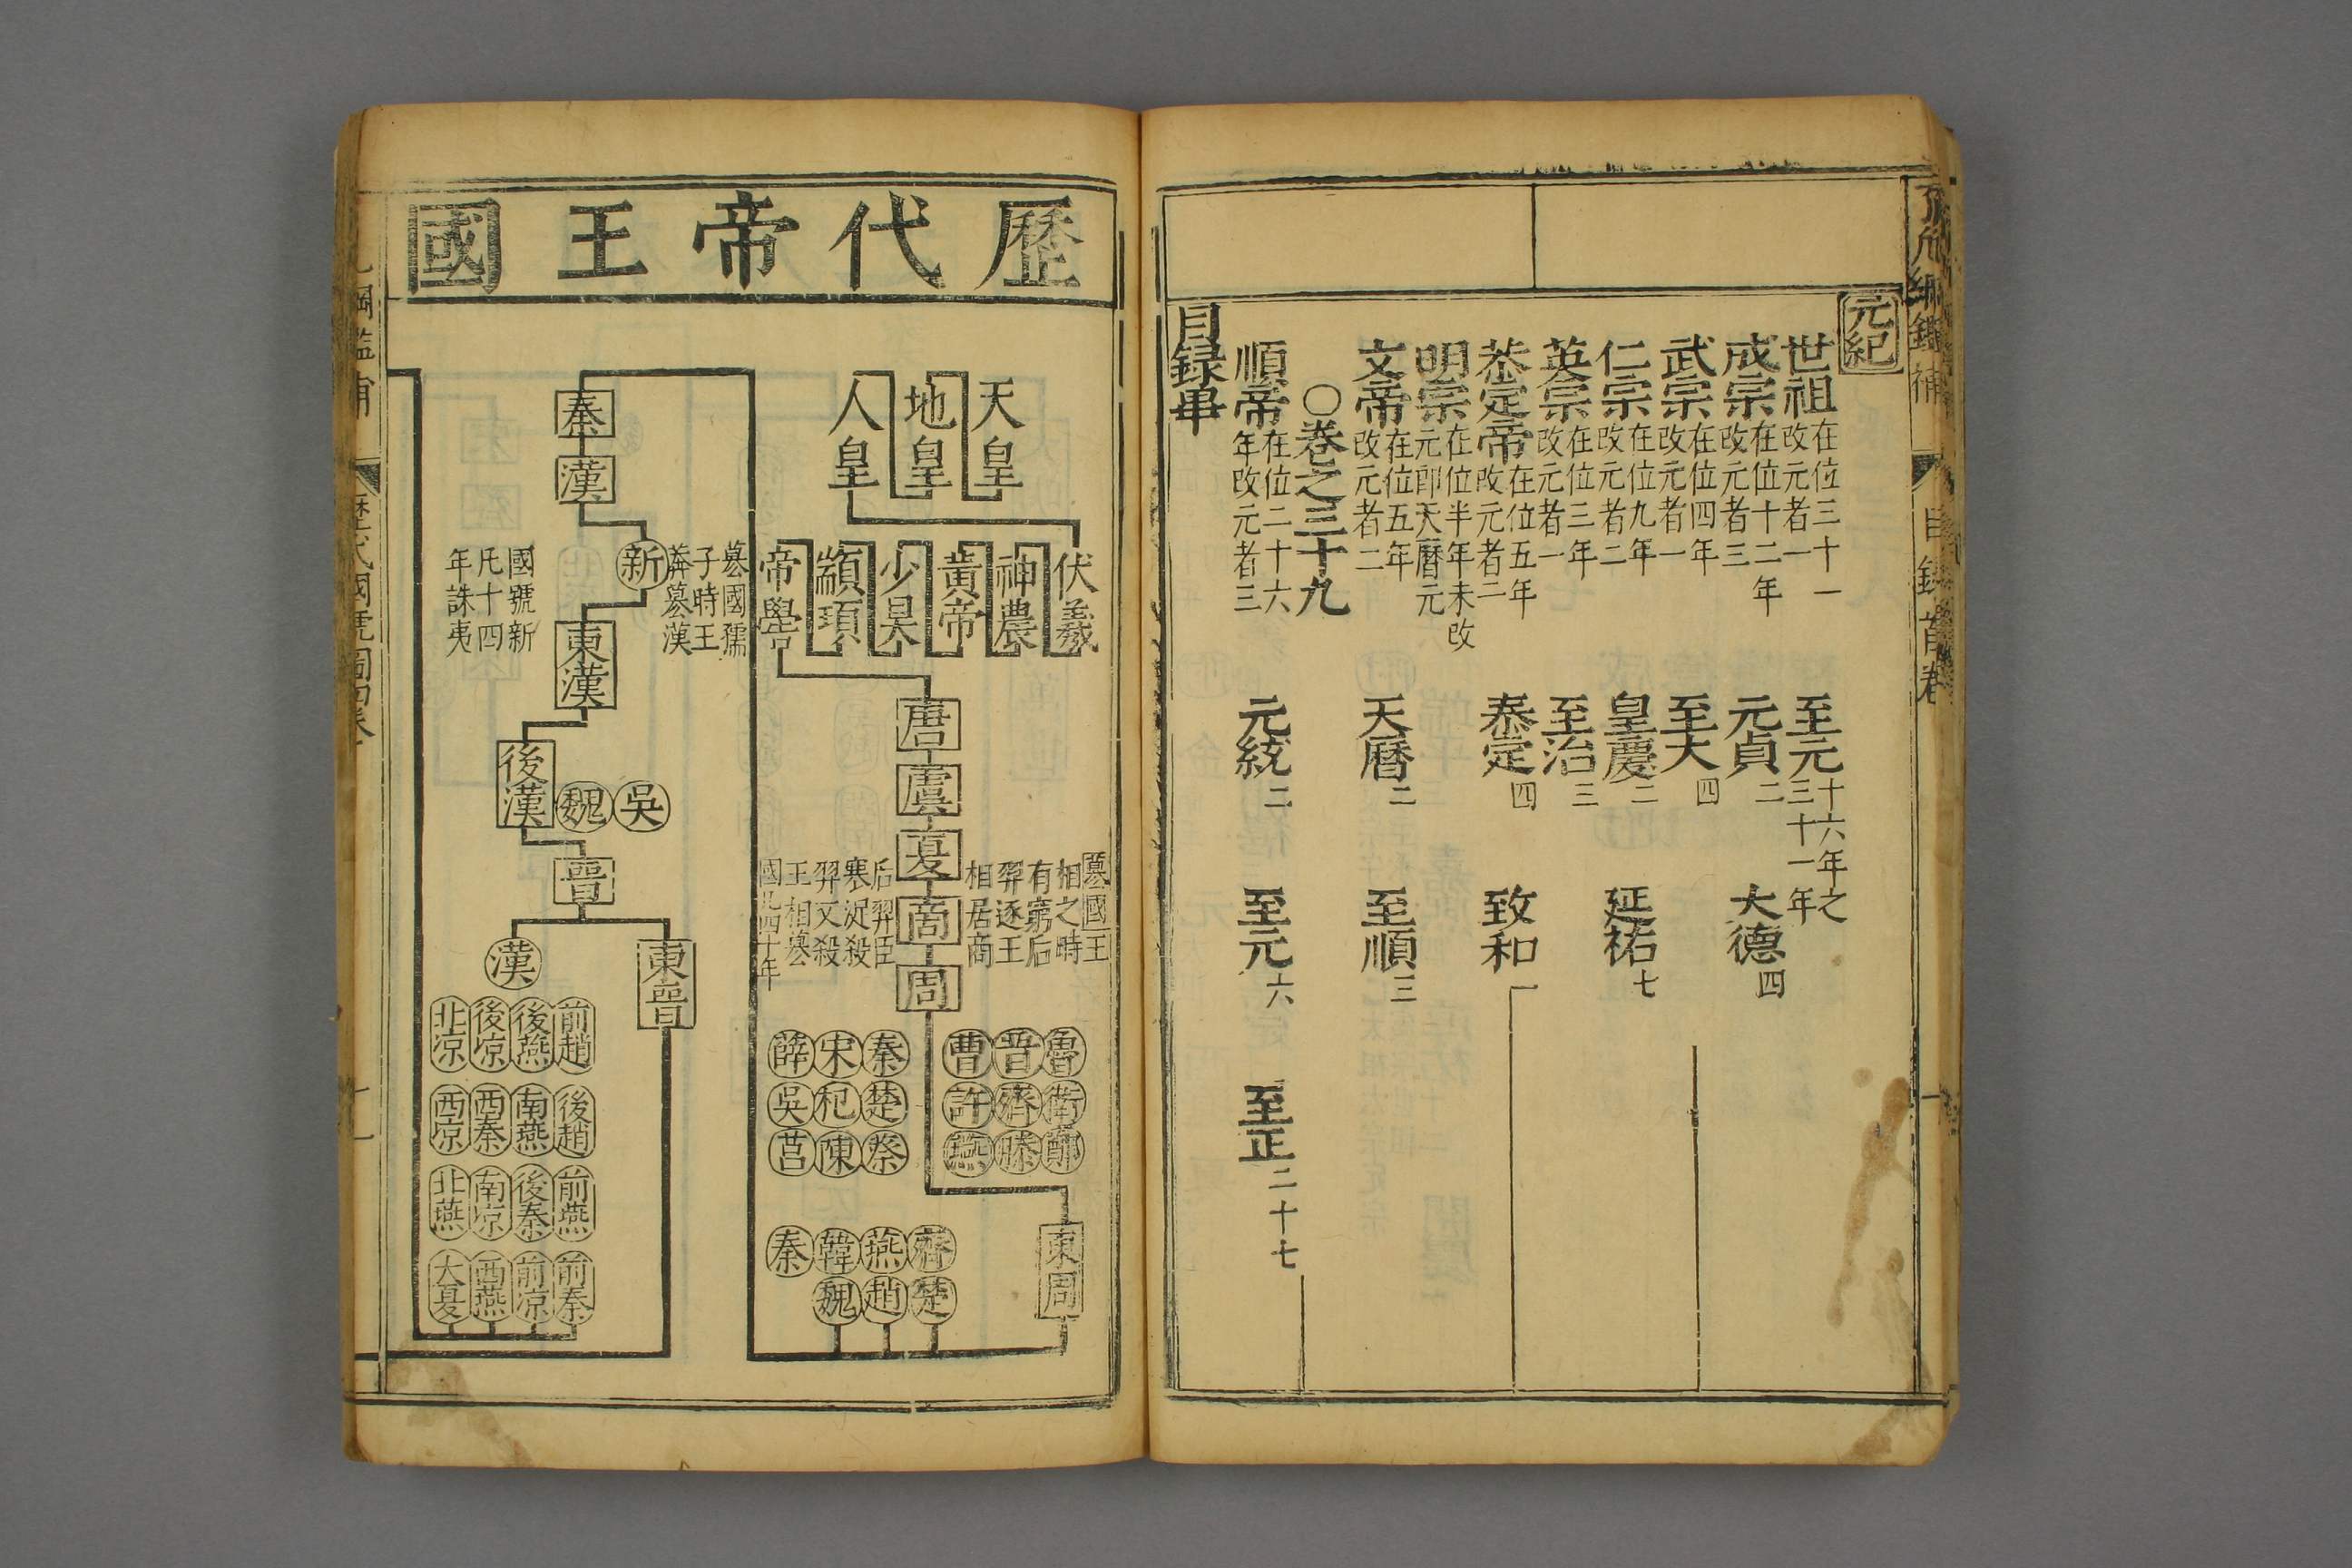 元紀
世祖 在位三十一 改元者一 至元 十六年之 三十一年
成宗 在位十二年 改元者三 元貞 二 大德 四
武宗 在位四年 改元者一 至大 四
仁宗 在位九年 改元者二 皇慶 二 延祐 七
英宗 在位三年 改元者一 至治 三
泰定帝 在位五年 改元者二 泰定 四 致和 一
明宗 在位半年未改 元卽天曆元
文帝 在位五年 改元者二 天曆 二 至順 三
○卷之三十九
順帝 在位二十六 年改元者三 元統 二 至元 六 至正 二十七
目錄畢
綱鑑補 目錄首卷
歷代帝王國
天皇
地皇
人皇
伏羲
神農
黃帝
少昊
顓頊
帝嚳
唐
虞
夏
商
周
篡國王
相之時
有窮后
羿逐王
相居商
后羿臣
寒浞殺
羿又殺
王相篡
國九四十年
魯 晉 曹
衛 齊 許
鄭 滕 燕
秦 宋 薛
楚 杞 吳
蔡 陳 莒
東周
齊 燕 韓 秦
楚 趙 魏
秦
漢
新
篡國孺
子時王
莽篡漢
國號新
凡十四
年誅夷
東漢
後漢
魏
吳
晉
東晉
漢
前趙 後燕 後凉 北凉
後趙 南燕 西秦 西凉
前燕 後秦 南凉 北燕
前秦 前凉 西燕 大夏
綱鑑補 歷代國號圖